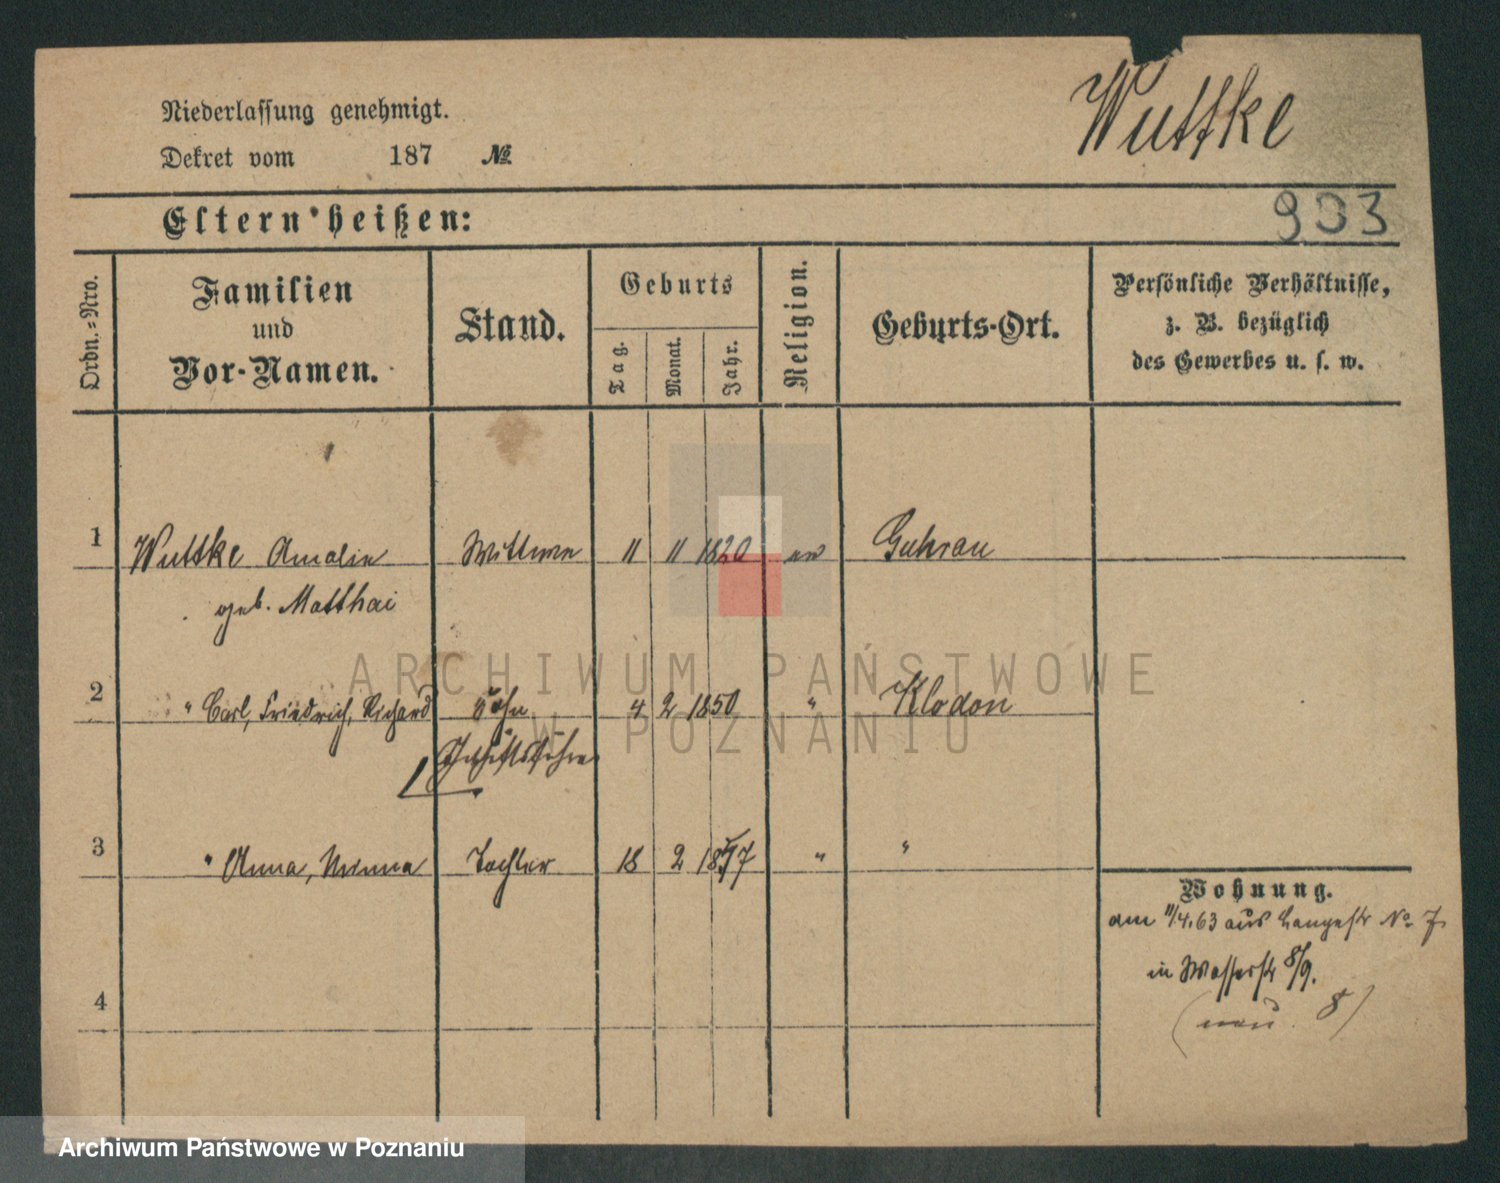 Niederlassung genehmigt.
Dekret vom 187 №
Wuttke
Eltern heißen:
933
Ordn.=Nro.
Familien und Vor-Namen.
Stand.
Geburts
Tag.
Monat.
Jahr.
Religion.
Geburts-Ort.
Persönliche Verhältnisse,
z. B. bezüglich
des Gewerbes u. s. w.
1 Wuttke Amalie Wittwe 11 11 1820 ev Guhrau
geb. Matthai
2 " Carl, Friedrich, Richard Sohn 4 2 1850 " Klodon
Geschäftsführer
3 " Anna, Minna Tochter 18 2 1857 " "
4
Wohnung.
am 11/4.63 aus Langestr No 7
in Wasserstr 8/9.
(neu 8)
ARCHIWUM PAŃSTWOWE
W POZNANIU
Archiwum Państwowe w Poznaniu